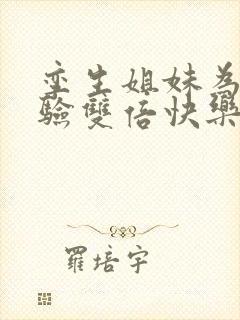 孪生姐妹为
验雙倍快樂
羅培宇